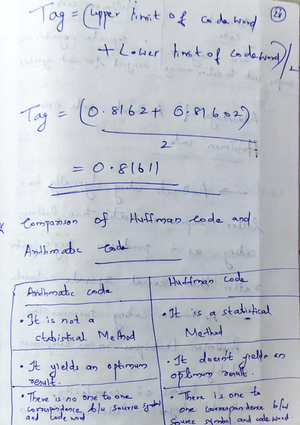 28
Tag = (upper limit of code word
+ Lower limit of code word)/2
Tag = (0.8162 + 0.81602)
2
= 0.81611
Comparison of Huffman code and
Arithmatic code
Arithmatic code
Huffman code
• It is not a
statistical Method
• It is a statistical
Method
• It yields an optimum
result.
• It doesn't yields an
optimum result.
• There is no one to one
correspondence b/w source symbol
and code word
• There is one to
one correspondence b/w
source symbol and code word